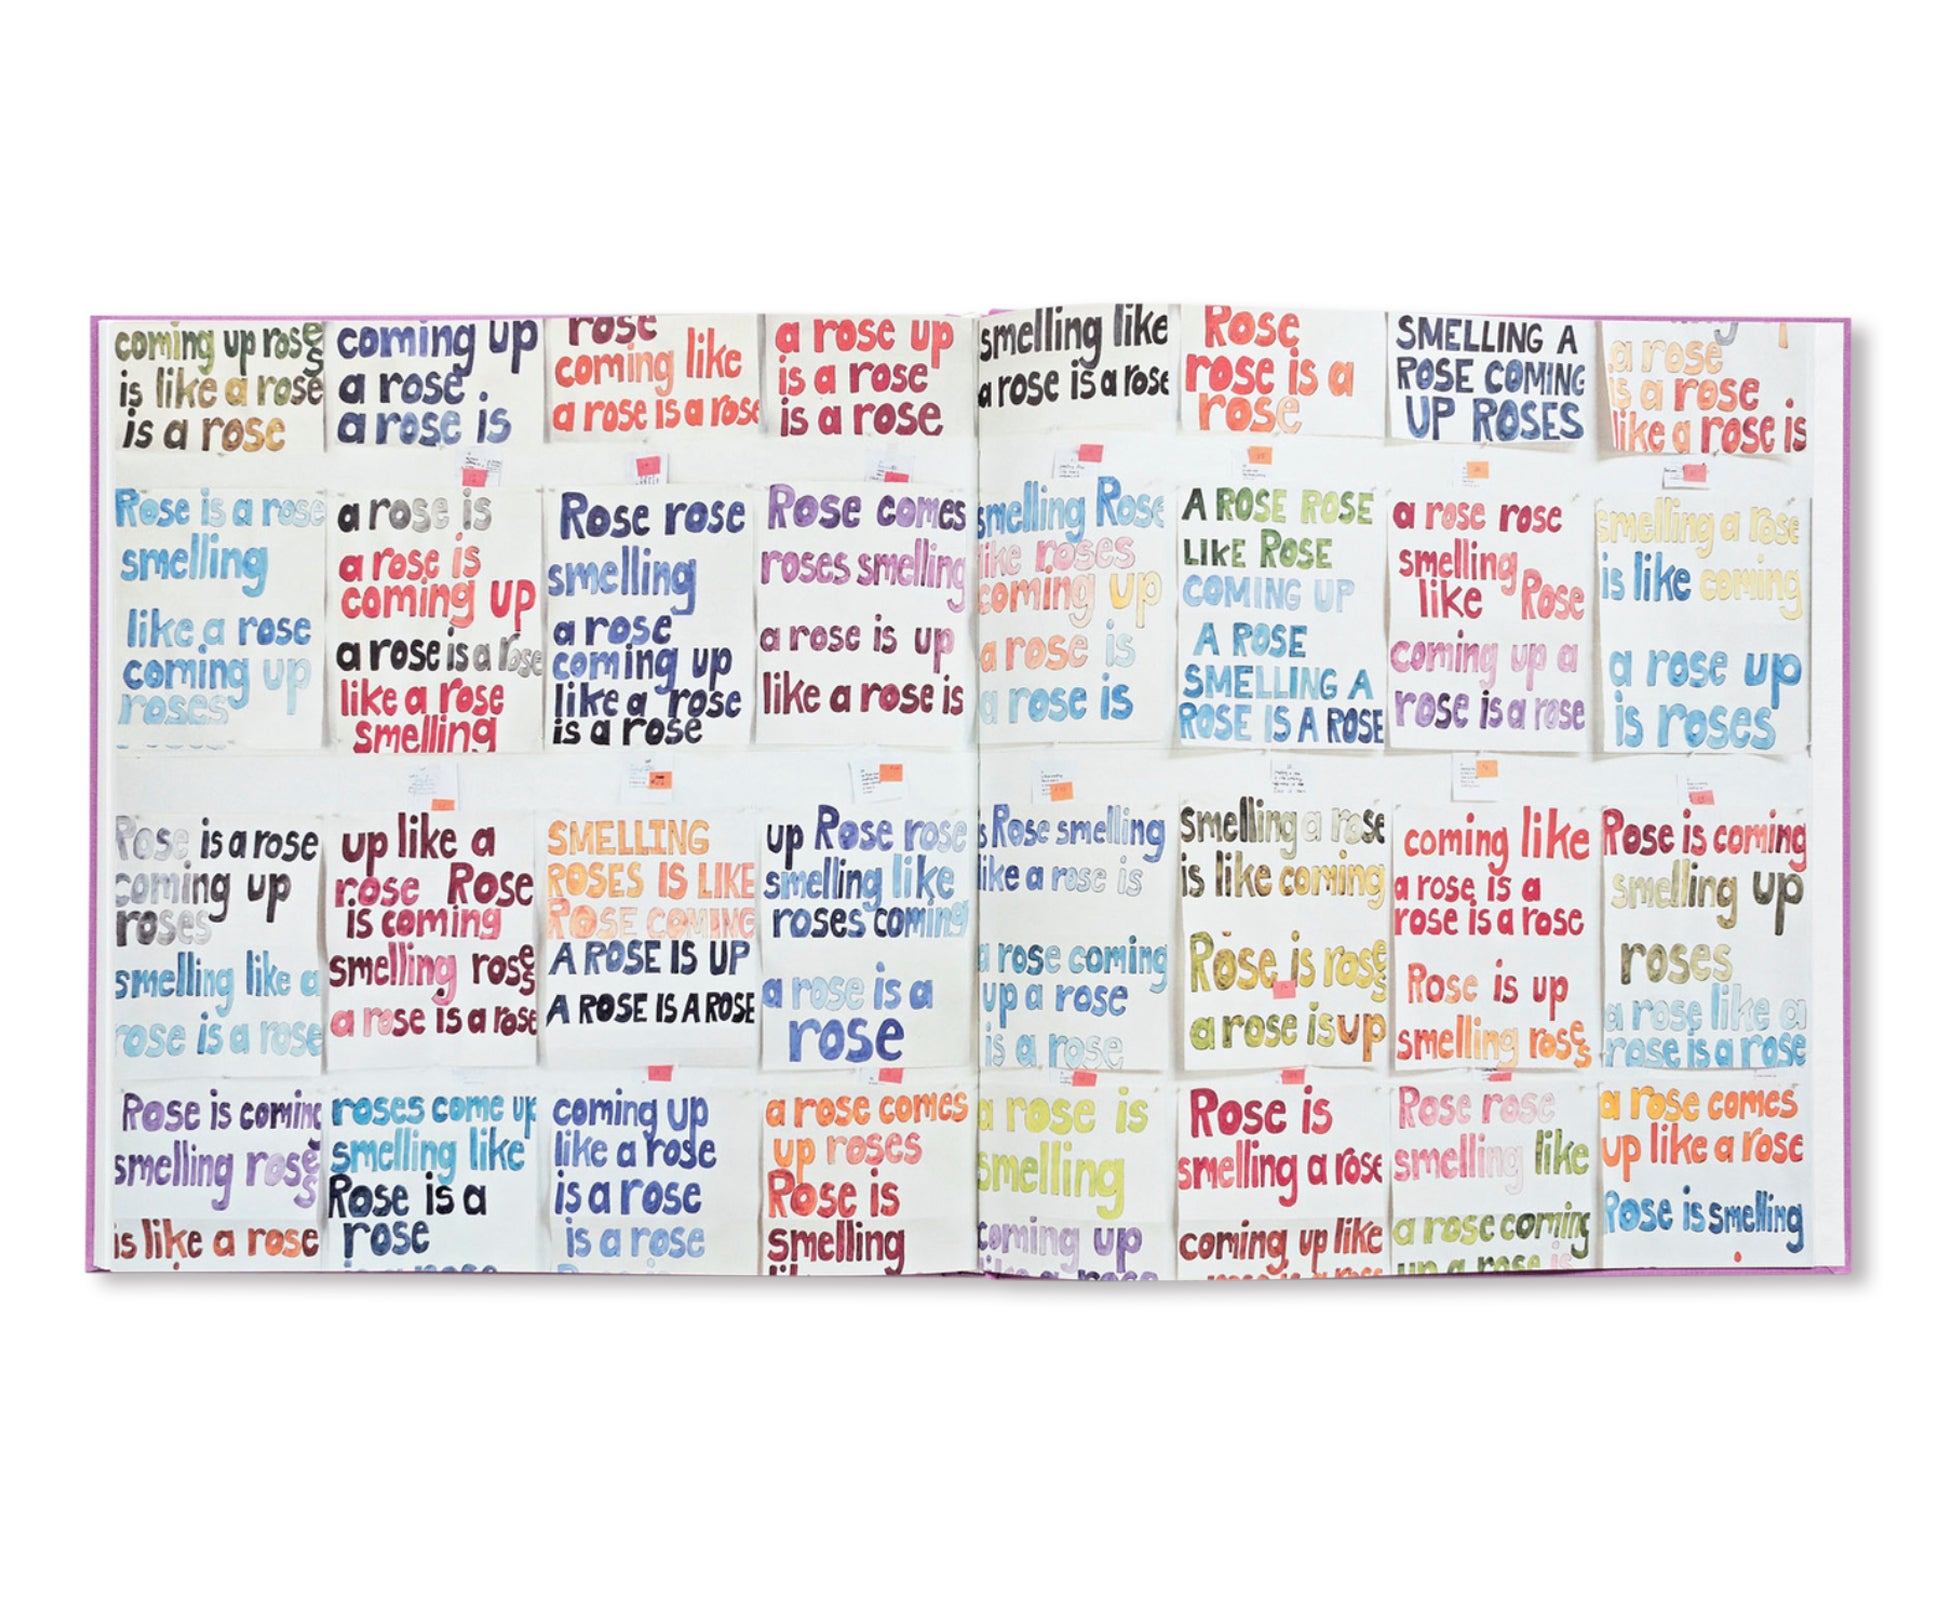 coming up roses
is like a rose
is a rose
coming up
a rose.
a rose is
rose
coming like
a rose is a rose
a rose up
is a rose
is a rose
smelling like
a rose is a rose
Rose
rose is a
rose
SMELLING A
ROSE COMING
UP ROSES
a rose
is a rose
like a rose is
Rose is a rose
smelling
like a rose
coming up
roses
a rose is
a rose is
coming up
a rose is a rose
like a rose
smelling
Rose rose
smelling
a rose
coming up
like a rose
is a rose
Rose comes
roses smelling
a rose is up
like a rose is
smelling Rose
like roses
coming up
a rose is
a rose is
A ROSE ROSE
LIKE ROSE
COMING UP
A ROSE
SMELLING A
ROSE IS A ROSE
a rose rose
smelling
like Rose
coming up a
rose is a rose
smelling a rose
is like coming
a rose up
is roses
Rose is a rose
coming up
roses
smelling like a
rose is a rose
up like a
rose Rose
is coming
smelling roses
a rose is a rose
SMELLING
ROSES IS LIKE
ROSE COMING
A ROSE IS UP
A ROSE IS A ROSE
up Rose rose
smelling like
roses coming
a rose is a
rose
s Rose smelling
like a rose is
a rose coming
up a rose
is a rose
Smelling a rose
is like coming
Rose is roses
a rose is up
coming like
a rose is a
rose is a rose
Rose is up
smelling roses
Rose is coming
smelling up
roses
a rose like a
rose is a rose
Rose is coming
smelling roses
is like a rose
roses come up
smelling like
Rose is a
rose
coming up
like a rose
is a rose
is a rose
a rose comes
up roses
Rose is
smelling
a rose is
smelling
coming up
like a rose
Rose is
smelling a rose
coming up like
Rose rose
smelling like
a rose coming
up a rose is
a rose comes
up like a rose
Rose is smelling